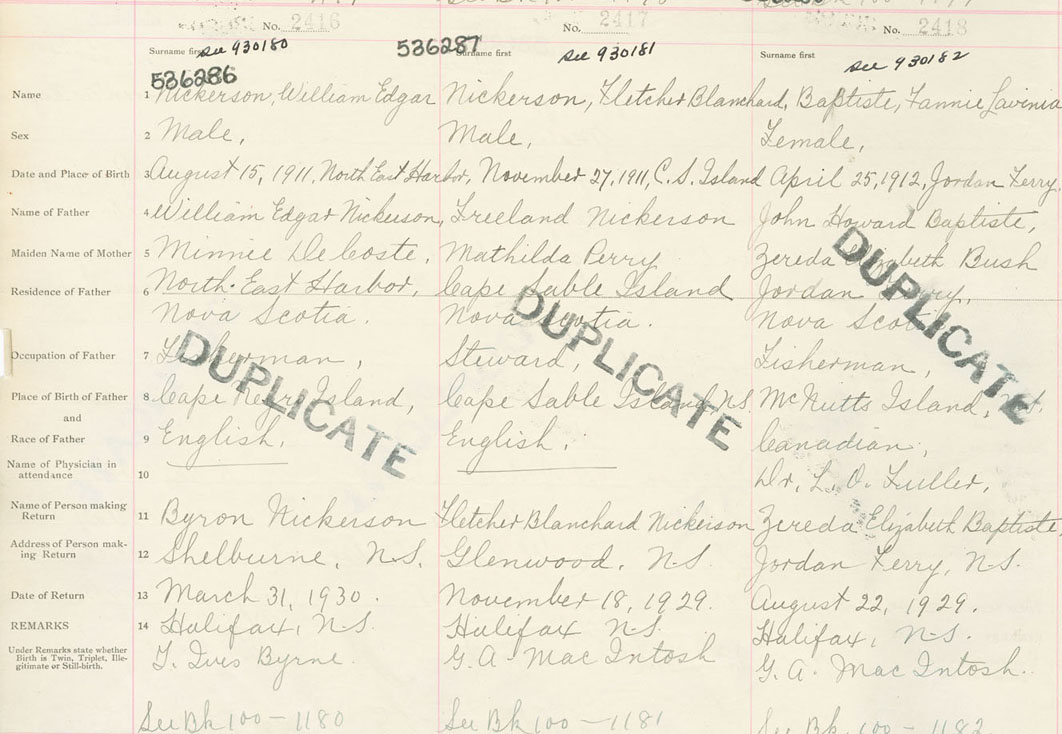 No. 2416 No. 2417 No. 2418
Surname first see 930180 536287 Surname first see 930181 Surname first see 930182
536286
Name 1 Nickerson, William Edgar Nickerson, Fletcher Blanchard, Baptiste, Fannie Lavinia
Sex 2 Male, Male, Female,
Date and Place of Birth 3 August 15, 1911, North East Harbor, November 27, 1911, C. S. Island April 25, 1912, Jordan Ferry.
Name of Father 4 William Edgar Nickerson, Freeland Nickerson John Howard Baptiste,
Maiden Name of Mother 5 Minnie DeCoste, Mathilda Perry Zereda Elizabeth Bush
Residence of Father 6 North East Harbor, Cape Sable Island Jordan Ferry,
Nova Scotia. Nova Scotia. Nova Scotia
Occupation of Father 7 Fisherman, Steward, Fisherman,
Place of Birth of Father 8 Cape Negro Island, Cape Sable Island, N.S. McNutts Island,
and
Race of Father 9 English. English. Canadian,
Name of Physician in
attendance 10 Dr. L. O. Fuller,
Name of Person making
Return 11 Byron Nickerson Fletcher Blanchard Nickerson Zereda Elizabeth Baptiste,
Address of Person mak-
ing Return 12 Shelburne, N.S. Glenwood, N.S. Jordan Ferry, N.S.
Date of Return 13 March 31, 1930. November 18, 1929. August 22, 1929.
REMARKS 14 Halifax, N.S. Halifax N.S. Halifax, N.S.
Under Remarks state whether
Birth is Twin, Triplet, Ille-
gitimate or Still-birth. T. Ives Byrne. G. A. MacIntosh G. A. MacIntosh.
See Bk 100 - 1180 See Bk 100 - 1181 See Bk. 100 - 1182
DUPLICATE DUPLICATE DUPLICATE